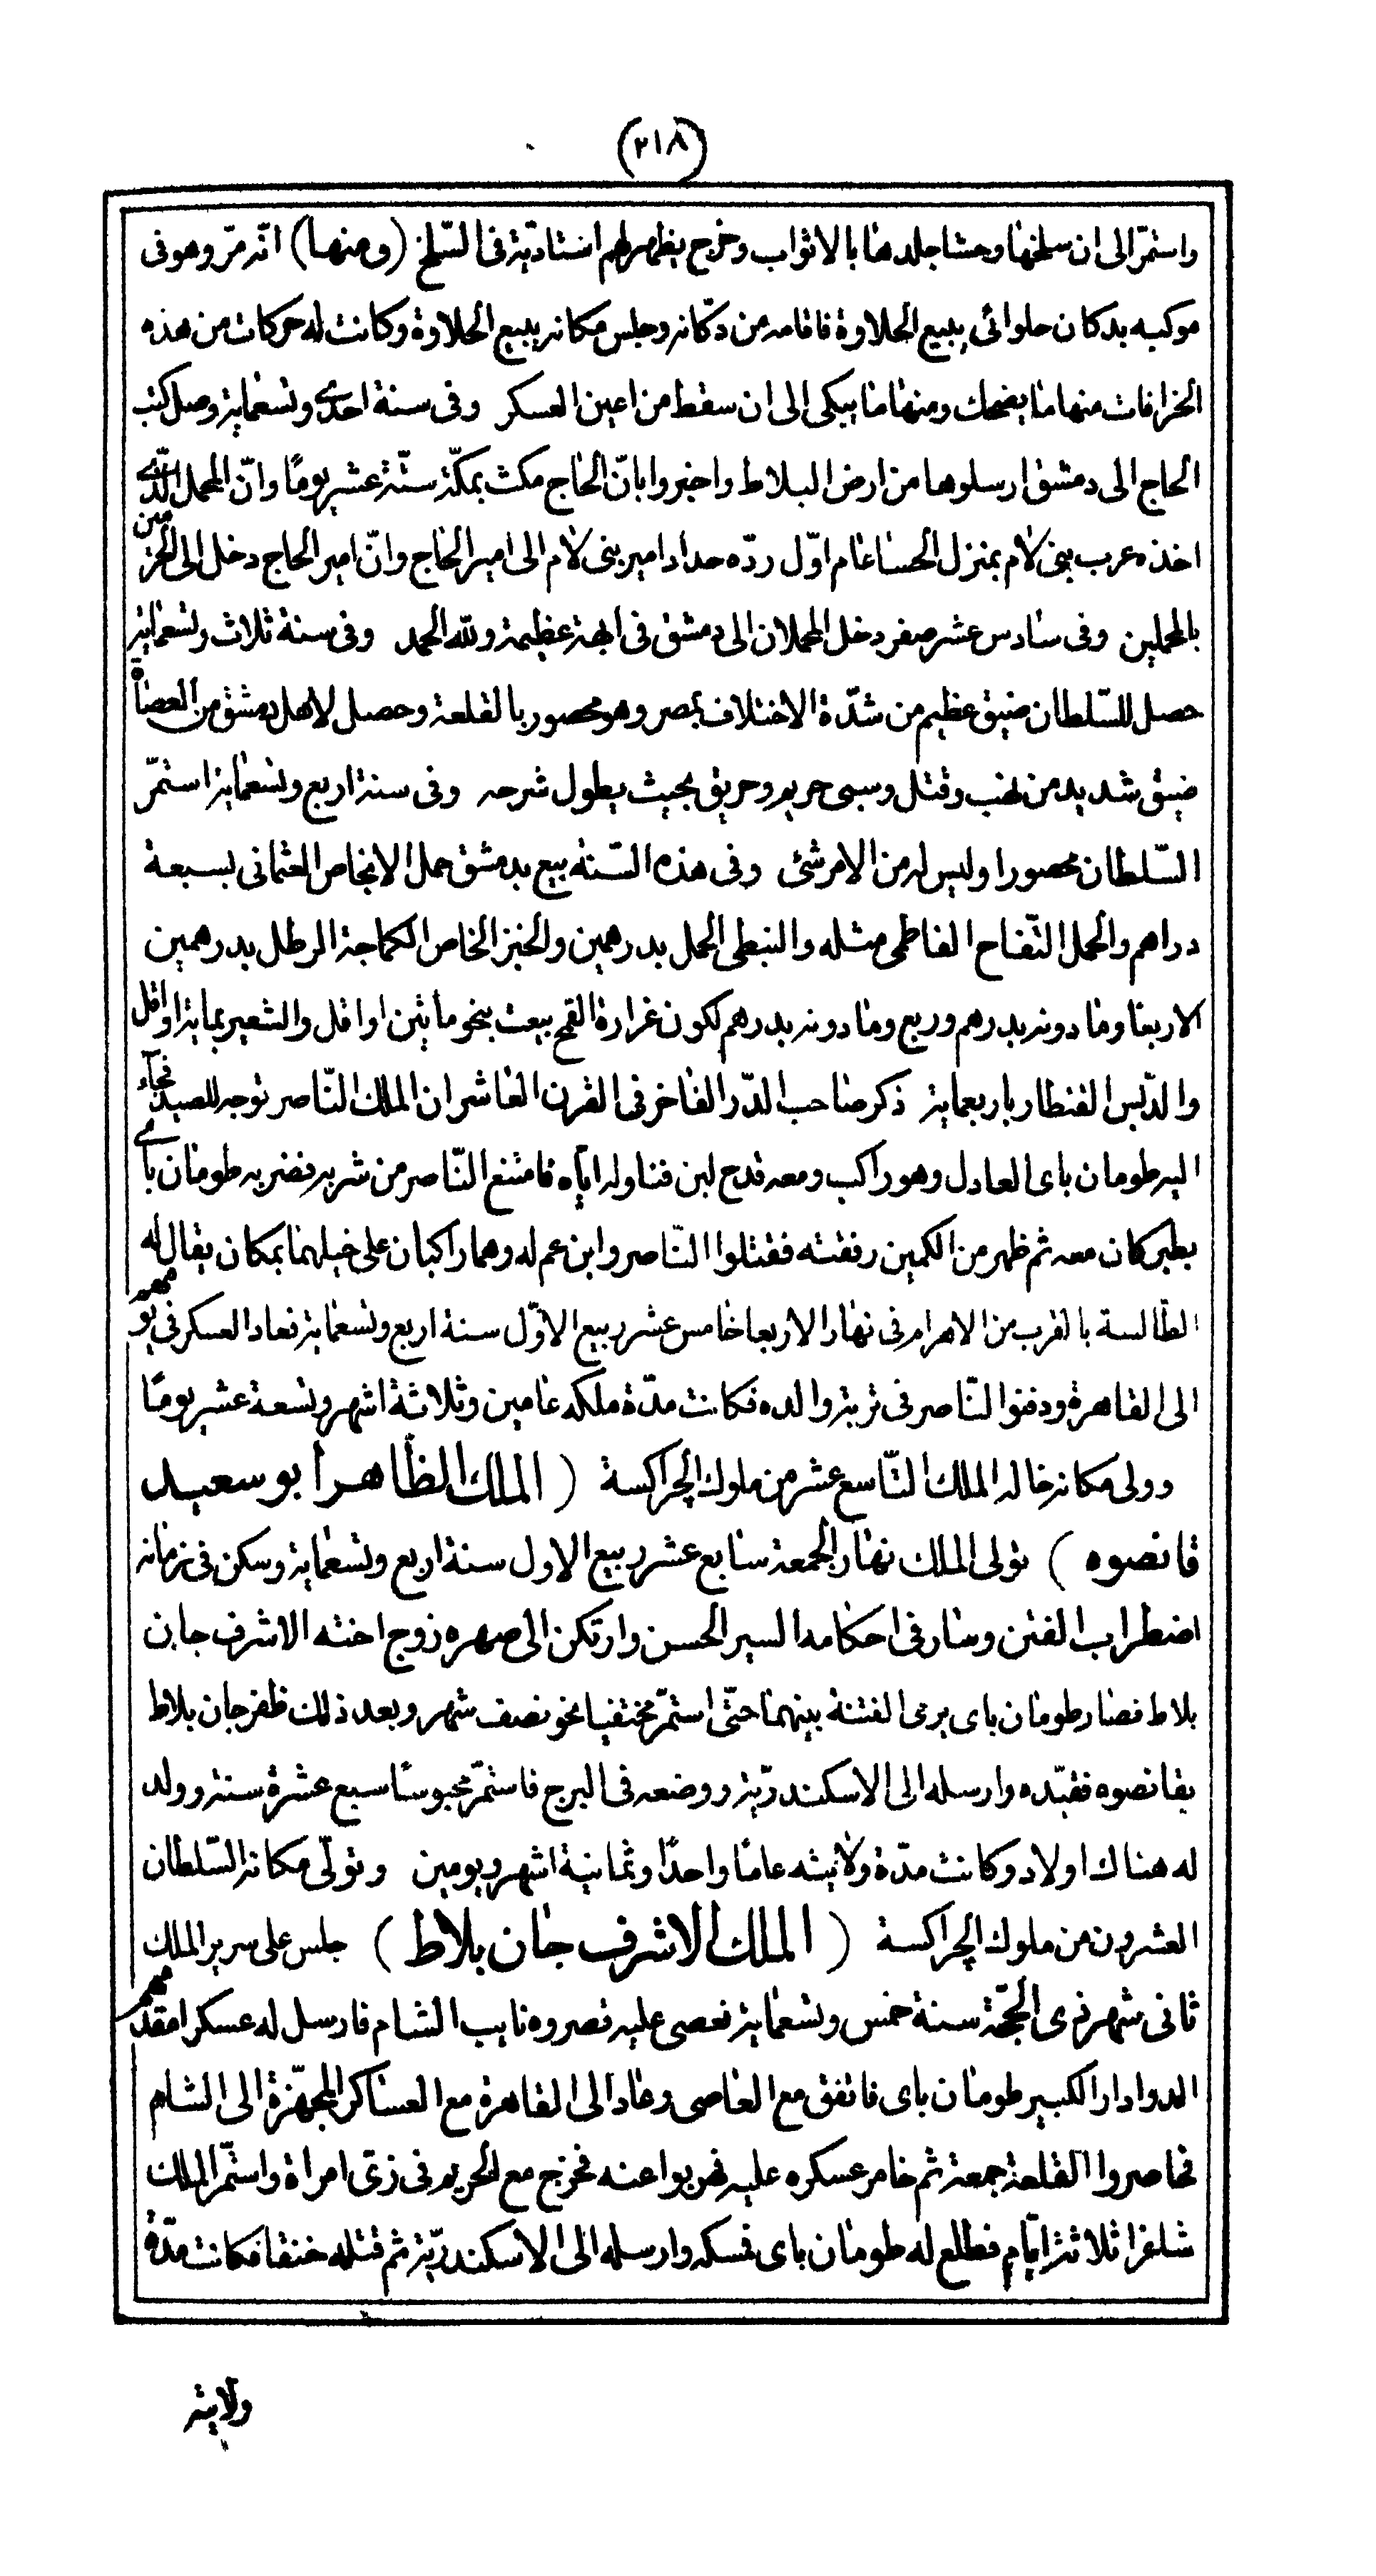 (٢١٨)
واستمرّ الى ان سلخها وحشا جلدها بالاثواب وخرج يظهر لهم استاذيّته فى السّلخ (ومنها) انّه مرّ وهو فى
موكبه بدكان حلوائى يبيع الحلاوة فاقامه من دكّانه وجلس مكانه يبيع الحلاوة وكانت له حركات من هذه
الخرافات منها ما يضحك ومنها ما يبكى الى ان سقط من اعين العسكر وفى سنة احدى وتسعماية وصل كتب
الحاج الى دمشق ارسلوها من ارض البلاط واخبروا بانّ الحاج مكث بمكّة ستّة عشر يومًا وانّ المحمل الّذى
اخذه عرب بنى لام بمنزل الحسا عام اوّل ردّه حداد امير بنى لام الى امير الحاج وانّ امير الحاج دخل الى الحرمين
بالمحملين وفى سادس عشر صفر دخل المحملان الى دمشق فى ابهة عظيمة ولله الحمد وفى سنة ثلاث وتسعماية
حصل للسّلطان ضيق عظيم من شدّة الاختلاف بمصر وهو محصور بالقلعة وحصل لاهل دمشق من العصاة
ضيق شديد من نهب وقتل وسبى حريم وحريق بحيث يطول شرحه وفى سنة اربع وتسعماية استمرّ
السّلطان محصورا وليس له من الامر شئ وفى هذه السّنة بيع بدمشق حمل الانجاص العثمانى بسبعة
دراهم والحمل التّفاح الفاطمى مثله والنبطى الحمل بدرهمين والخبز الخاص الكماجة الرطل بدرهمين
الا ربعا وما دونه بدرهم وربع وما دونه بدرهم لكون غرارة القمح بيعت بنحو مائتين او اقل والشعير بماية او اقل
والدّبس القنطار باربعماية ذكر صاحب الدّر الفاخر فى القرن العاشر ان الملك النّاصر توجه للصيد فجآء
اليه طومان باى العادل وهو راكب ومعه قدح لبن فناوله ايّاه فامتنع النّاصر من شربه فضربه طومان باى
بطبر كان معه ثم ظهر من الكمين رفقته فقتلوا النّاصر وابن عم له وهما راكبان على خيلهما بمكان يقال له
الطّالسة بالقرب من الاهرام فى نهار الاربعا خامس عشر ربيع الاوّل سنة اربع وتسعماية فعاد العسكر فى يومهم
الى القاهرة ودفنوا النّاصر فى تربة والده فكانت مدّة ملكه عامين وثلاثة اشهر وتسعة عشر يومًا
وولى مكانه خاله الملك التّاسع عشر من ملوك الچراكسة (الملك الظاهر ابو سعيد
قانصوه) تولى الملك نهار الجمعة سابع عشر ربيع الاول سنة اربع وتسعماية وسكن فى زمانه
اضطراب الفتن وسار فى احكامه السير الحسن وارتكن الى صهره زوج اخته الاشرف جان
بلاط فصار طومان باى يرمى الفتنة بينهما حتّى استمرّ مختفيا نحو نصف شهر وبعد ذلك ظفر جان بلاط
بقانصوه فقيّده وارسله الى الاسكندريّة ووضعه فى البرج فاستمرّ محبوسًا سبع عشرة سنة وولد
له هناك اولاد وكانت مدّة ولايته عامًا واحدًا وثمانية اشهر ويومين وتولّى مكانه السّلطان
العشرون من ملوك الچراكسة (الملك الاشرف جان بلاط) جلس على سرير الملك
ثانى شهر ذى الحجّة سنة خمس وتسعماية فعصى عليه قصروه نايب الشام فارسل له عسكرا مقدمهم
الدوادار الكبير طومان باى فاتفق مع العاصى وعاد الى القاهرة مع العساكر المجهّزة الى الشام
فحاصروا القلعة جمعة ثم خامر عسكره عليه فهربوا عنه فخرج مع الحريم فى زىّ امراة واستمّر الملك
شاغرا ثلاثة ايّام فطلع له طومان باى فمسكه وارسله الى الاسكندريّة ثم قتله خنقا فكانت مدّة
ولايته